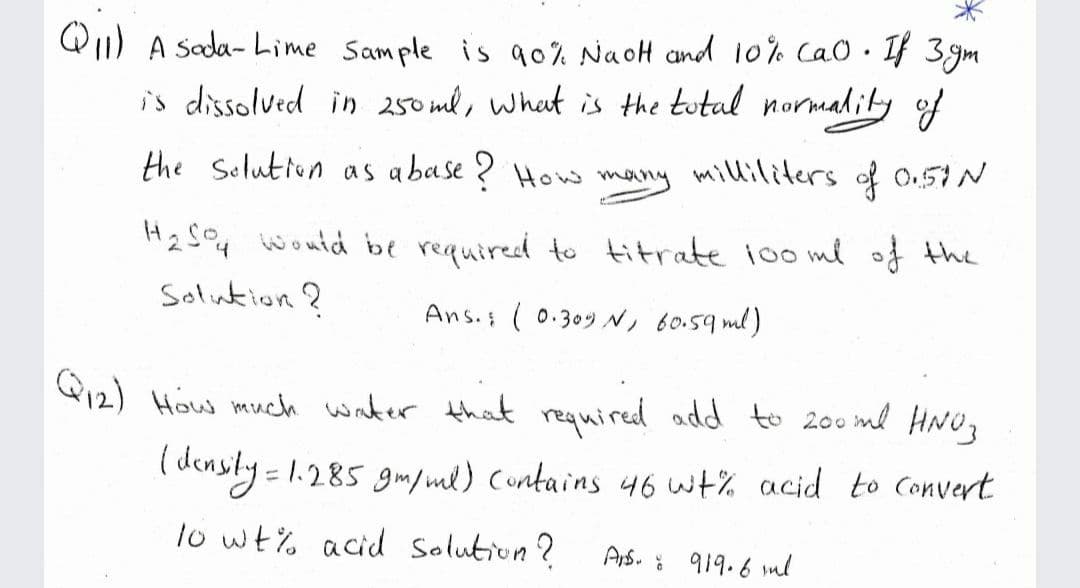 Q11) A Soda-Lime Sample is 90% NaOH and 10% CaO. If 3gm
is dissolved in 250 ml, What is the total normality of
the Solution as a base? How many milliliters of 0.51 N
H2SO4 would be required to titrate 100 ml of the
Solution?
Ans.: ( 0.309 N, 60.59 ml)
Q12) How much water that required add to 200 ml HNO3
( density = 1.285 gm/ml) Contains 46 wt% acid to Convert
10 wt% acid Solution? Ans. : 919.6 ml